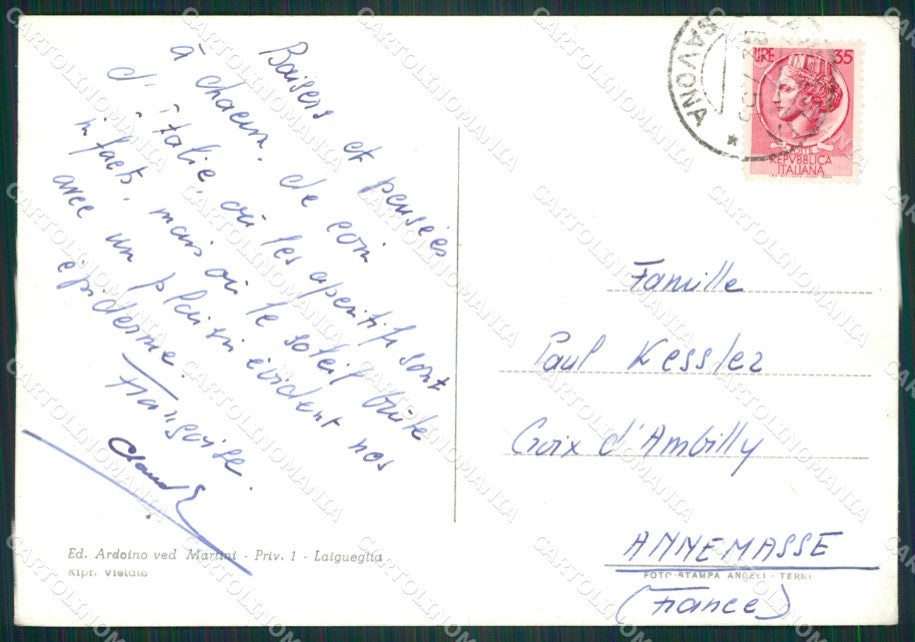 Baisers et pensées
à chacun. de ce coin
d'Italie, où les aperitifs sont
infects, mais où le soleil brûle
avec un plaisir évident nos
épiderme.
Françoise.
SAVONA
LIRE 35
REPVBBLICA
ITALIANA
Famille
Paul Kessler
Croix d'Ambilly
ANNEMASSE
(France)
Ed. Ardoino ved Martini - Priv. 1 - Laigueglia
Ripr. Vietata
FOTO-STAMPA ANGELI - TERNI
CARTOLINOMANIA